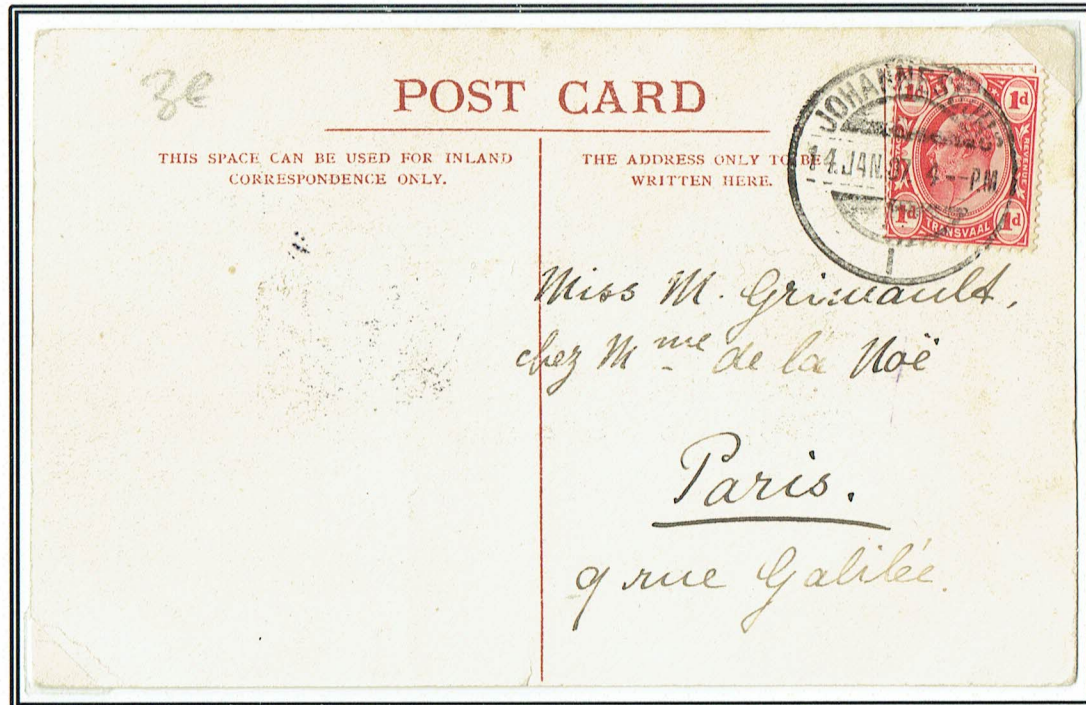 3€
POST CARD
THIS SPACE CAN BE USED FOR INLAND
CORRESPONDENCE ONLY.
THE ADDRESS ONLY TO BE
WRITTEN HERE.
JOHANNESBURG
14.JAN.07 4--PM
1
1d
1d
REVENUE
1d
TRANSVAAL
1d
Miss M. Grimault,
chez Mme de la Noë
Paris.
9 rue Galilée.